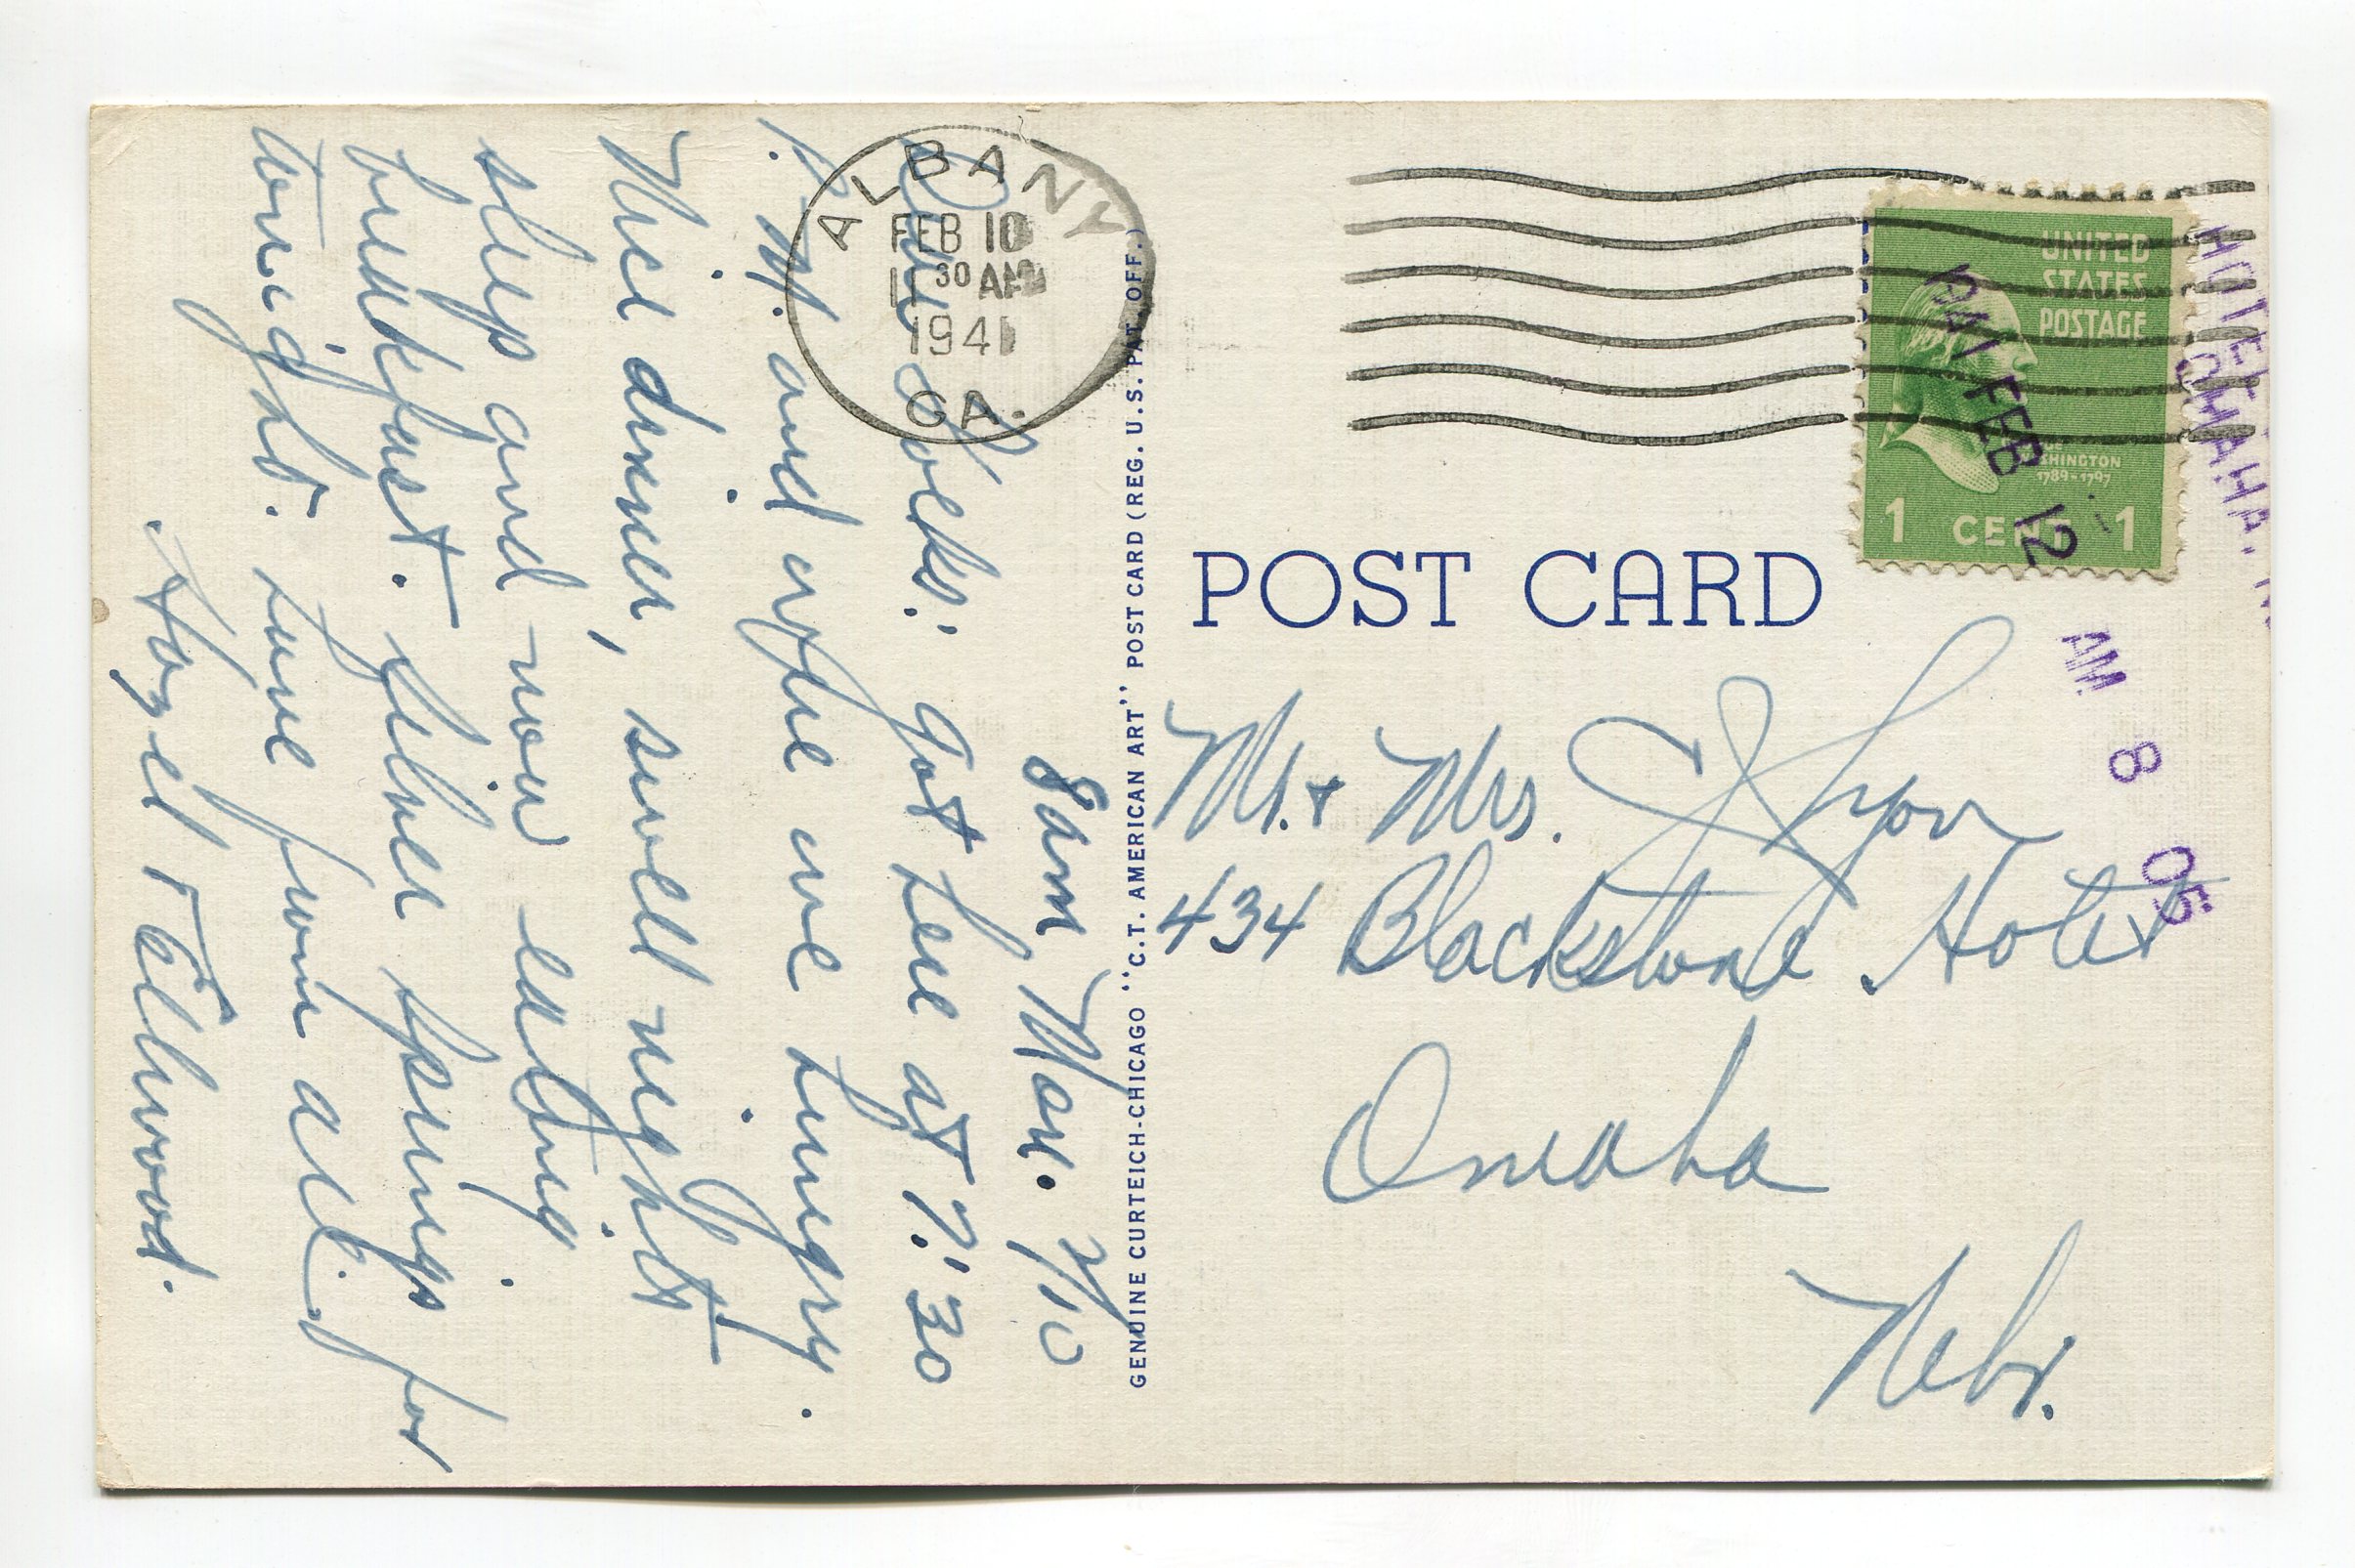 8am Mon. 2/10
Dear Folks: Got here at 7:30
P.M. and were we hungry.
Nice dinner, swell night
sleep and now eating
breakfast. Silver Springs for
tonight. Love from all.
Hazel + Ellwood.
ALBANY
FEB 10
11 30 AM
1941
GA.
GENUINE CURTEICH-CHICAGO "C.T. AMERICAN ART" POST CARD (REG. U.S. PAT. OFF.)
POST CARD
UNITED
STATES
POSTAGE
1789-1797
1 CENT 1
HOTEL
OMAHA,
1941 FEB 12 AM 8 05
Mr. + Mrs. Lyon
434 Blackstone Hotel
Omaha
Nebr.